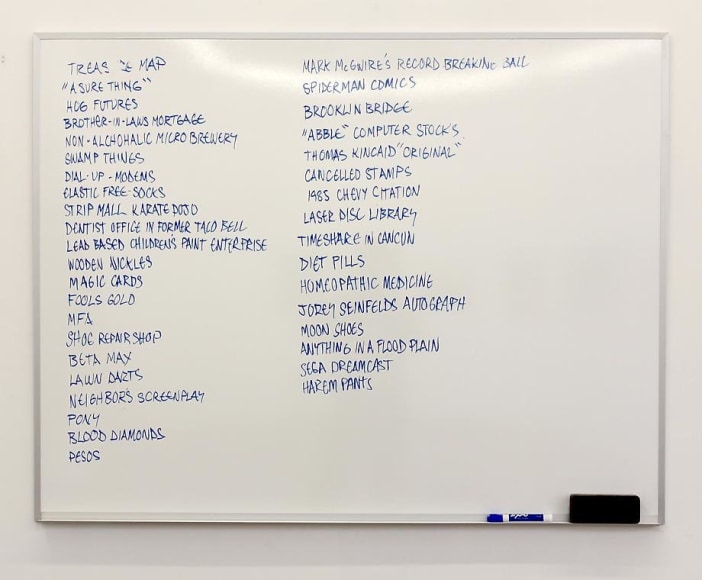 TREAS RE MAP
"A SURE THING"
HOG FUTURES
BROTHER-IN-LAWS MORTGAGE
NON-ALCHOHALIC MICRO BREWERY
SWAMP THINGS
DIAL-UP-MODEMS
ELASTIC FREE-SOCKS
STRIP MALL KARATE DOJO
DENTIST OFFICE IN FORMER TACO BELL
LEAD BASED CHILDREN'S PAINT ENTERPRISE
WOODEN NICKLES
MAGIC CARDS
FOOLS GOLD
MFA
SHOE REPAIR SHOP
BETA MAX
LAWN DARTS
NEIGHBOR'S SCREENPLAY
PONY
BLOOD DIAMONDS
PESOS
MARK McGWIRE'S RECORD BREAKING BALL
SPIDERMAN COMICS
BROOKLIN BRIDGE
"ABBLE" COMPUTER STOCK'S
THOMAS KINCAID "ORIGINAL"
CANCELLED STAMPS
1985 CHEVY CITATION
LASER DISC LIBRARY
TIMESHARE IN CANCUN
DIET PILLS
HOMEOPATHIC MEDICINE
JOREY SEINFELDS AUTOGRAPH
MOON SHOES
ANYTHING IN A FLOOD PLAIN
SEGA DREAMCAST
HAREM PANTS